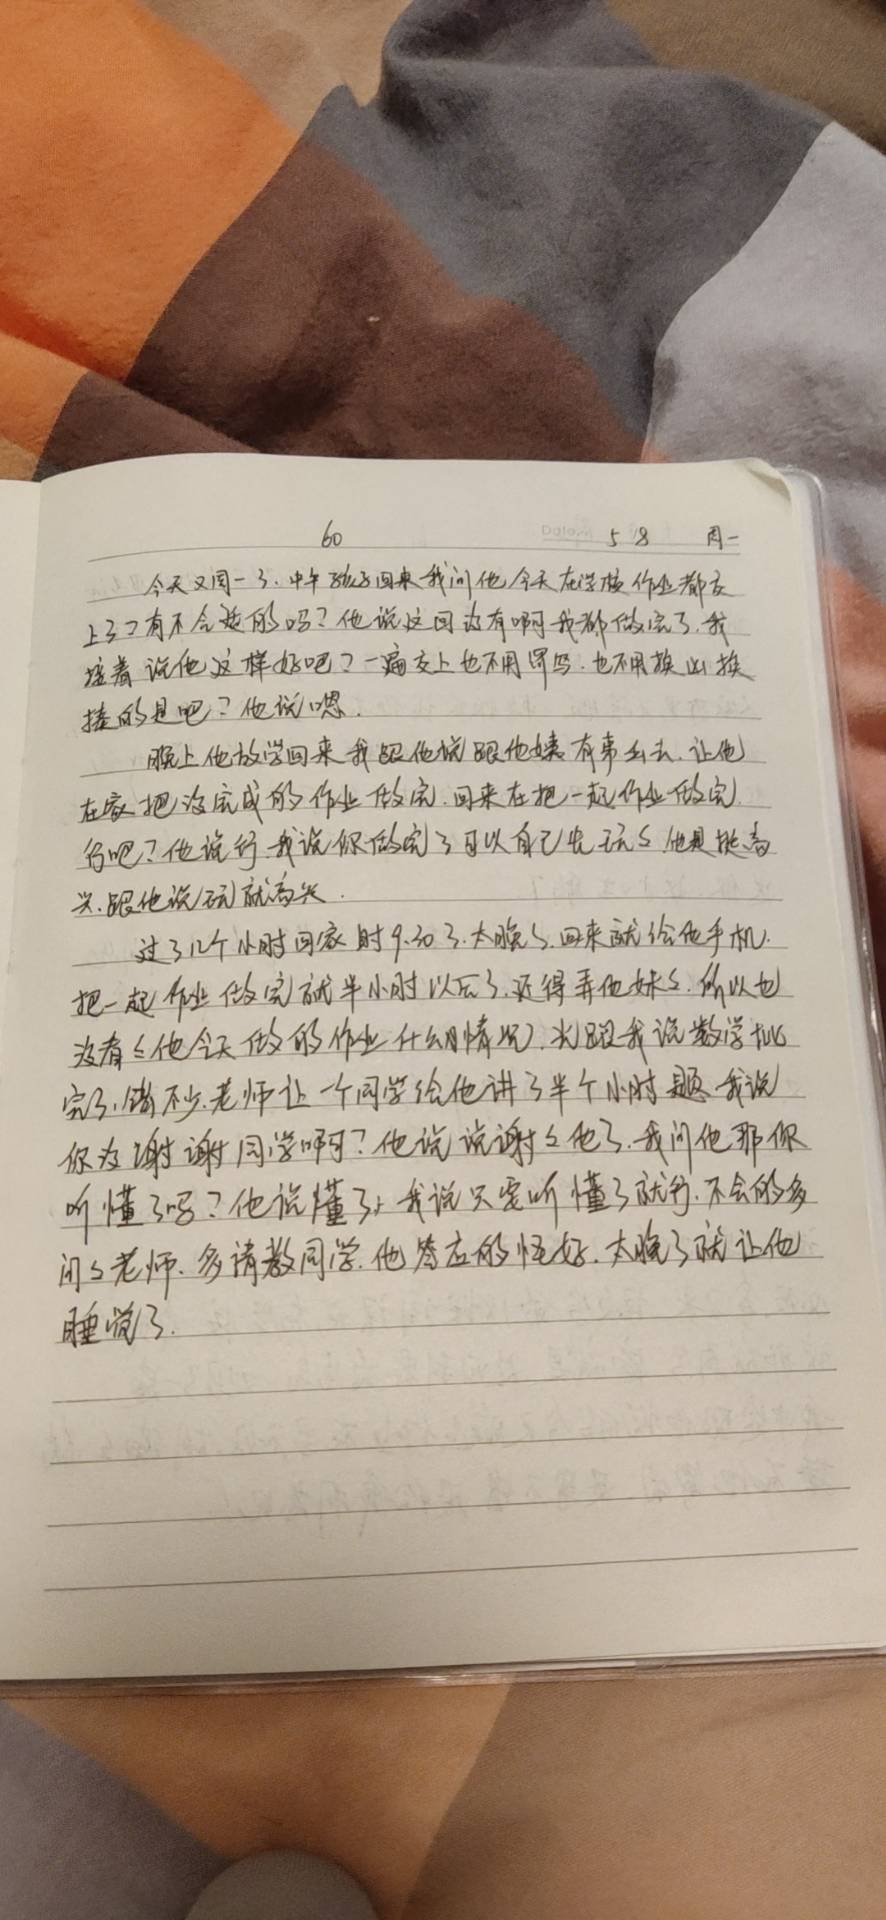 60 5 8 周一
今天又周一了.中午孩子回来我问他今天在学校作业都交
上了?有不会的吗?他说这回没有啊我都做完了.我
接着说他这样好吧?一遍交上也不用罚写.也不用挨
的是吧?他说嗯.
晚上他放学回来我跟他说跟他姨有事出去.让他
在家把没完成的作业做完.回来在把一起作业做完
行吧?他说行我说你做完了可以自己先玩.他是挺高
兴.跟他说玩就高兴.
过了几个小时回家时9.30了.太晚了.回来就给他手机.
把一起作业做完就半小时以后了.还得弄他妹妹.所以也
没看看他今天做的作业什么情况.光跟我说数学
完了.错不少.老师让一个同学给他讲了半个小时题.我说
你没谢谢同学啊?他说说谢谢他了.我问他那你
听懂了吗?他说懂了.我说只要听懂了就行.不会的多
问问老师.多请教同学.他答应的怪好.太晚了就让他
睡觉了.